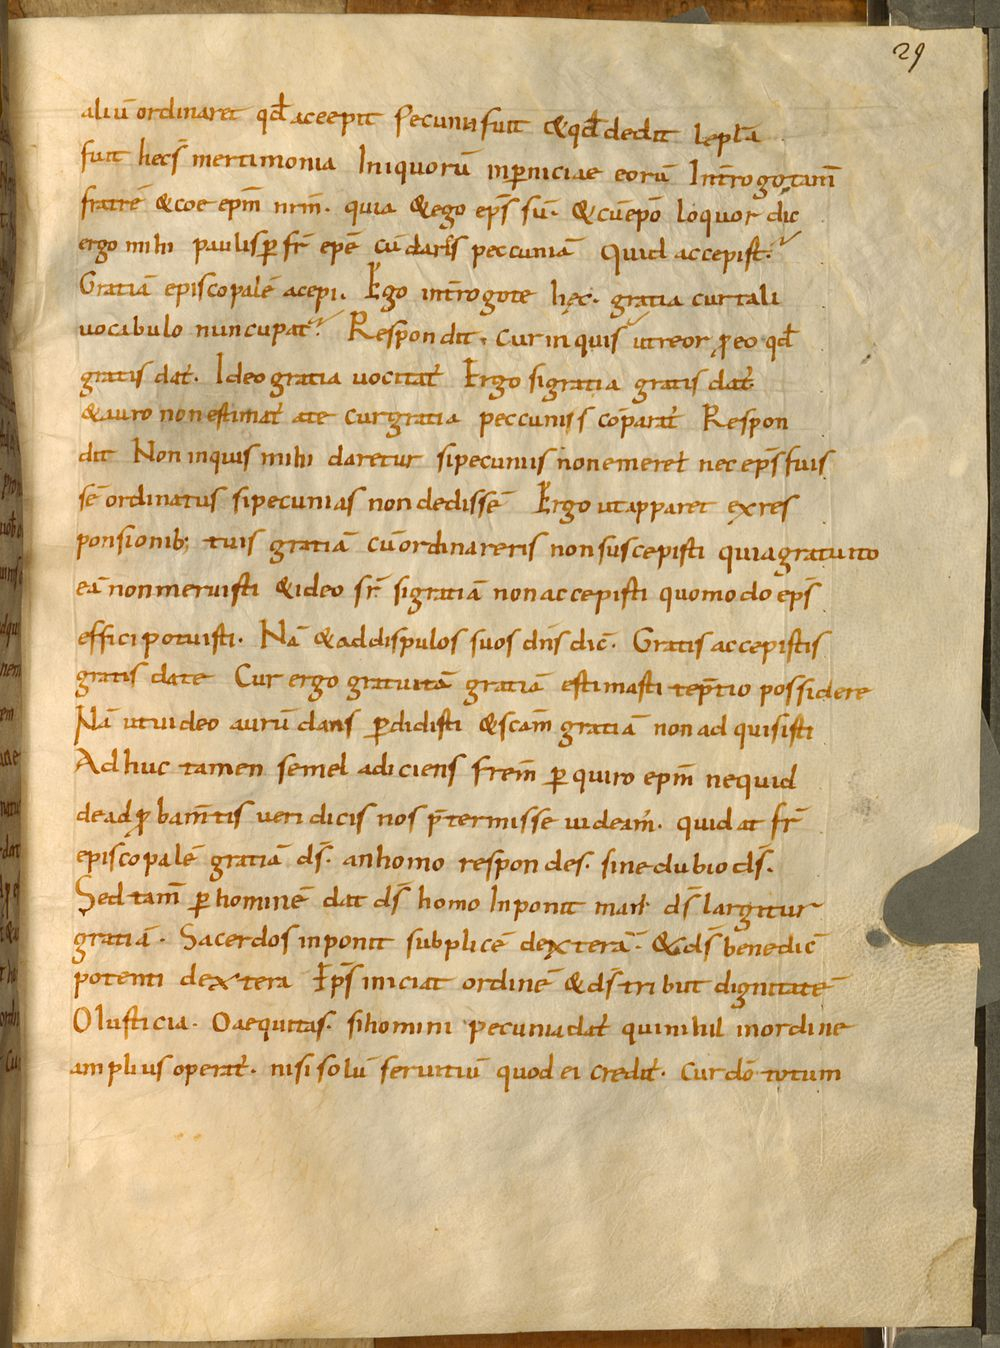 29
aliū ordinaret qđ aceepit Secunia fuit &qđ dedit lepl̄a
fuit hecs̄ mertimonia Iniquorū inp̄niciae eorū Int̄rogotam̄
fratrē &coe ep̄m nr̄m. quia &ego ep̄s sū. &cūep̄o loquor dic
ergo mihi paulisp̄ fr̄ epē cū dar̄s peccuniā Quid accepist.
Gratiā episcopalē acepi. Ego int̄rogote hęc. gratia curtali
vocabulo nuncupat̄? Respondit. cur inquis utreor p̄eo qđ
gratis dat̄. Ideo gratia uocitat̄ Ergo sigratia gratis dat̄
&auro nonestimat̄ ate curgratia peccuniis cōparat̄ Respon
dit Non inquis mihi daretur sipecuniis nonemeret̄ nec ep̄s fuis
sē ordinatus sipecunias non dedissē Ergo utapparet exres
ponsionib; tuis gratiā cūordinareris non suscepisti quiagratuito
eā nonmeruisti &ideo sr̄ sigratiā nonaccepisti quomodo ep̄s
effici potuisti. Nā &addispulos suos dn̄s dic̄. Gratis accepistis
gratis date Cur ergo gratuitā gratiā estimasti tep̄tio possidere
Nā utuideo aurū dans p̄didisti &sc̄am̄ gratiā non ad quisisti
Adhuc tamen semel adiciens frem̄ p̄ quiro ep̄m nequid
deadp̄ bam̄tis ueridicis nos p̄termisse uideam̄. quid at fr̄
episcopalē gratiā ds̄. anhomo respondes. sinedubio ds̄.
Sed tam̄ p̄ hominē dat ds̄ homo Inponit man̄ ds̄ largitur
gratiā. Sacerdos inponit subplicē dexterā. &ds̄ benedic̄
potenti dextera Ep̄s iniciat ordinē &ds̄ tribut dignitatē
O Iusticia. O aequitas. sihomini pecuniadat̄ quinihil inordine
amplius operat̄. nisi solū seruitiū quod ei credit̄. cur dō totum